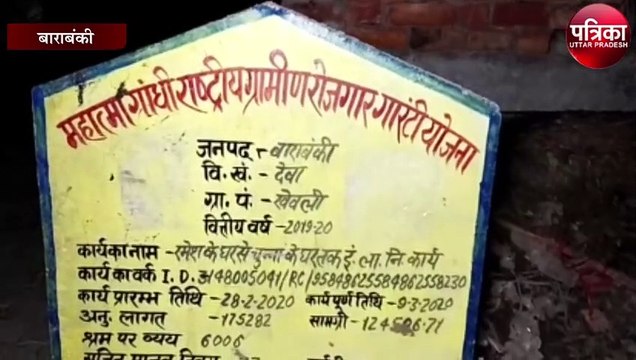 बाराबंकी
पत्रिका
UTTAR PRADESH
महात्मा गांधी राष्ट्रीय ग्रामीण रोजगार गारंटी योजना
जनपद - बाराबंकी
वि. खं. - देवा
ग्रा. पं. - खेवली
वित्तीय वर्ष - 2019-20
कार्य का नाम - रमेश के घर से चुन्ना के घर तक इं. ला. नि. कार्य
कार्य का वर्क I. D. 3148005041/RC/958486255848625582​30
कार्य प्रारम्भ तिथि - 28-2-2020 कार्य पूर्ण तिथि - 9-3-2020
अनु. लागत - 175282 सामग्री - 124506.71
श्रम पर व्यय 6006